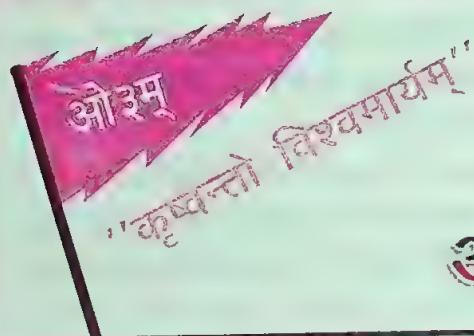 ओ३म्
"कृण्वन्तो विश्वमार्यम्"